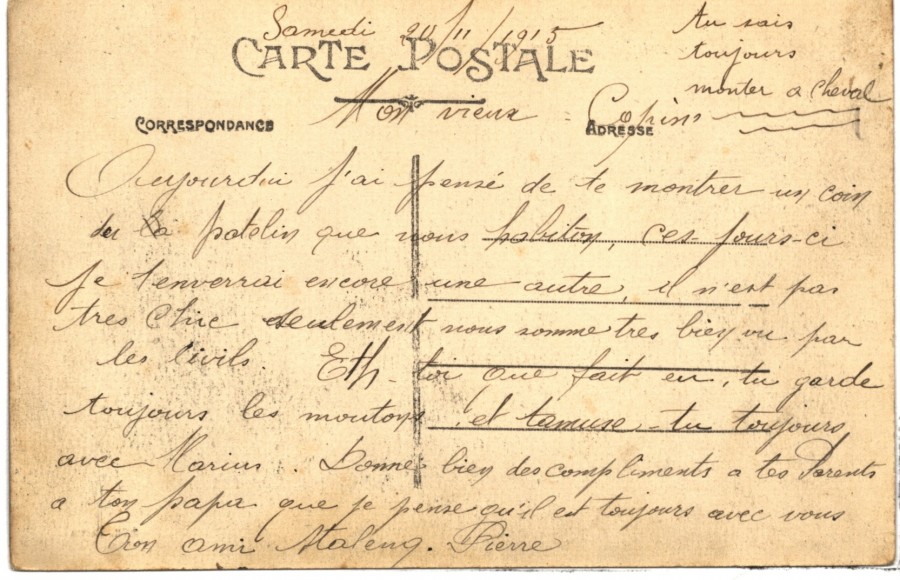 Samedi 20/11/1915
tu sais
toujours
monter a cheval
CARTE POSTALE
CORRESPONDANCE
ADRESSE
Mon vieux Copin
Aujourdui j'ai pensé de te montrer un coin
du patelin que nous habiton, ces jours-ci
Je t'enverrai encore une autre, il n'est pas
tres chic seulement nous somme tres bien vu par
les civils. Eh toi que fait tu, tu garde
toujours les moutons, et tamuse-tu toujours
avec Marius. Donne bien des compliments a tes Parents
a ton papa que je pense qu'il est toujours avec vous
Ton ami Pierre